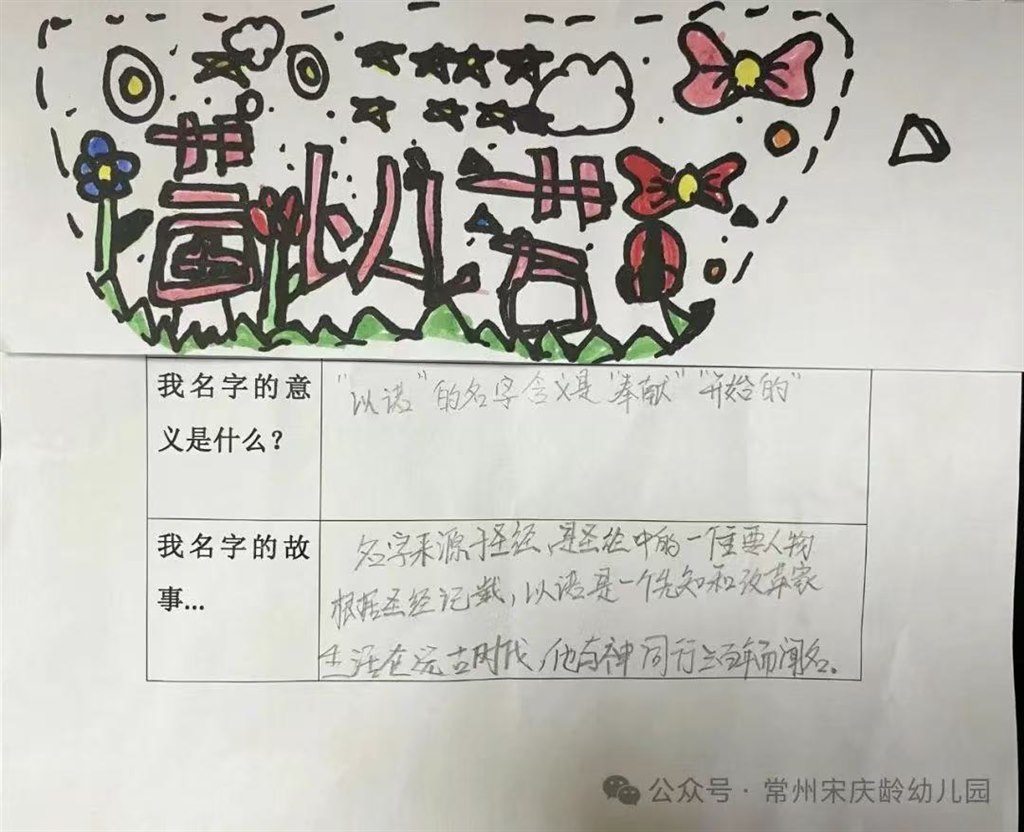 以若
我名字的意
义是什么？
"以诺"的名字含义是"奉献""开始的"
我名字的故
事...
名字来源于圣经，是圣经中的一个重要人物
根据圣经记载，以诺是一个先知和改革家
生活在远古时代，他与神同行三百年而闻名。
公众号·常州宋庆龄幼儿园